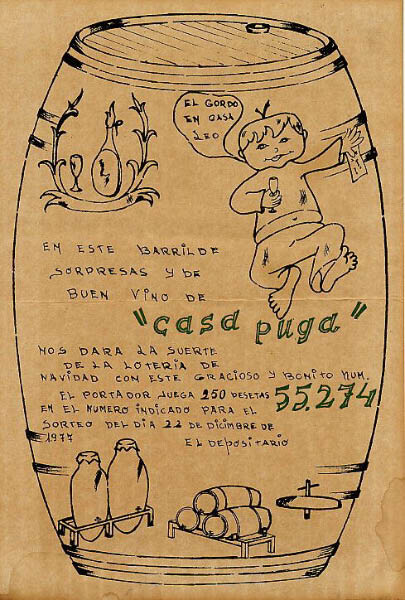 EL GORDO
EN CASA
LEO
EN ESTE BARRIL DE
SORPRESAS Y DE
BUEN VINO DE
"casa puga"
NOS DARA LA SUERTE
DE LA LOTERIA DE
NAVIDAD CON ESTE GRACIOSO Y BONITO NUM.
EL PORTADOR JUEGA 250 PESETAS 55.274
EN EL NUMERO INDICADO PARA EL
SORTEO DEL DIA 22 DE DICIMBRE DE
1977
EL DEPOSITARIO